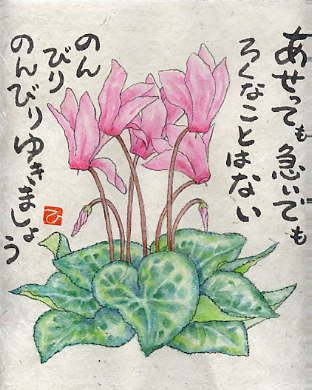 あせっても急いでも
ろくなことはない
のん
びり
のんびりゆきましょう
ひ